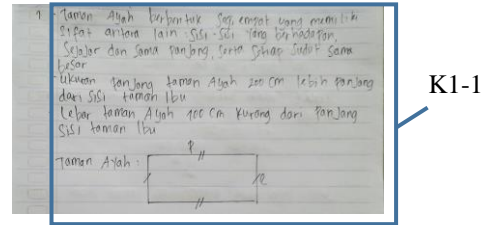 1. - Taman Ayah berbentuk segi empat yang memiliki
sifat antara lain : Sisi-sisi yang berhadapan,
Sejajar dan sama panjang, serta setiap sudut sama
besar
- Ukuran panjang taman Ayah 200 cm lebih panjang
dari sisi taman Ibu
Lebar taman Ayah 100 cm kurang dari panjang
sisi taman Ibu
Taman Ayah :
P
l
K1-1